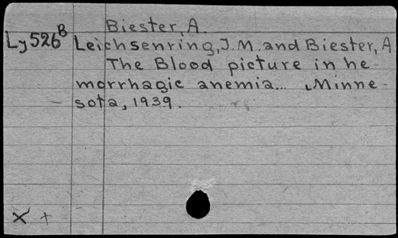 Biester, A.
Ly526B Leichsenring, J.M. and Biester, A
The Blood picture in he-
morrhagic anemia... Minne-
sota, 1939.
x +